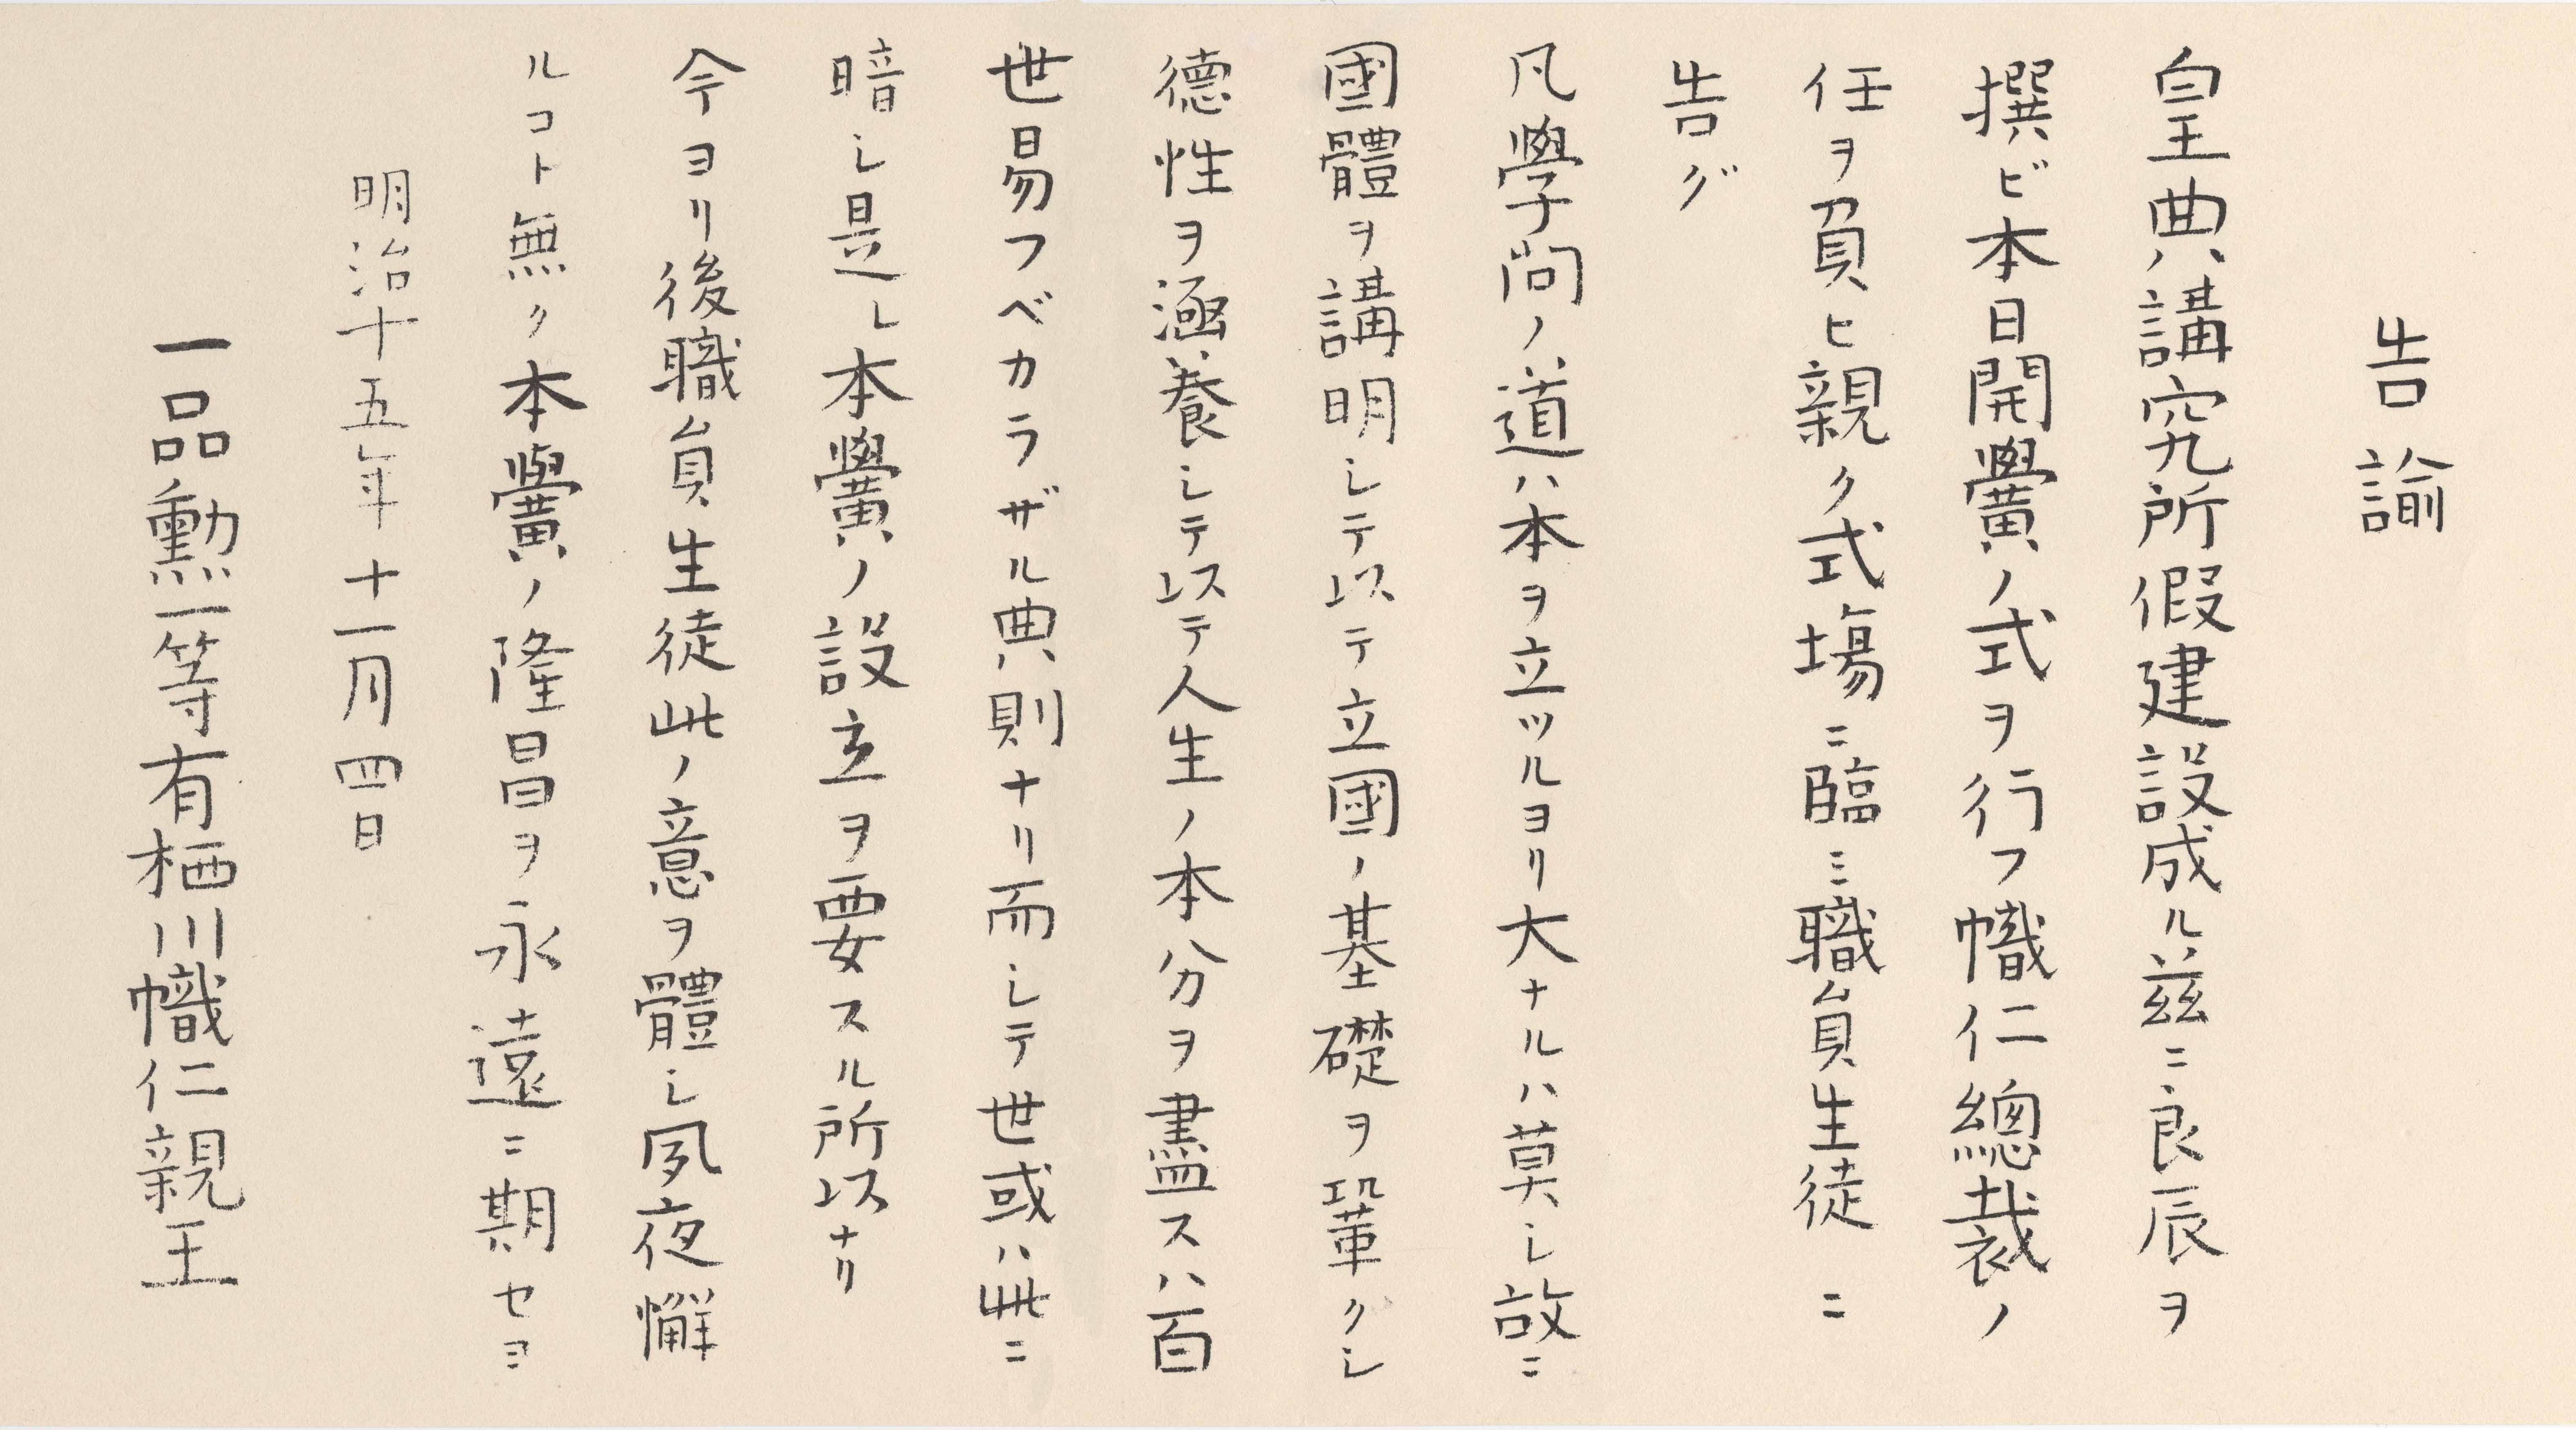 告諭
皇典講究所假建設成ル玆ニ良辰ヲ
撰ビ本日開黌ノ式ヲ行フ幟仁總裁ノ
任ヲ負ヒ親ク式場ニ臨ミ職員生徒ニ
告グ
凡學問ノ道ハ本ヲ立ツルヨリ大ナルハ莫シ故ニ
國體ヲ講明シテ以テ立國ノ基礎ヲ鞏クシ
德性ヲ涵養シテ以テ人生ノ本分ヲ盡スハ百
世易フベカラザル典則ナリ而シテ世或ハ此ニ
暗シ是レ本黌ノ設立ヲ要スル所以ナリ
今ヨリ後職員生徒此ノ意ヲ體シ夙夜懈
ルコト無ク本黌ノ隆昌ヲ永遠ニ期セヨ
明治十五年十一月四日
一品勲一等有栖川幟仁親王